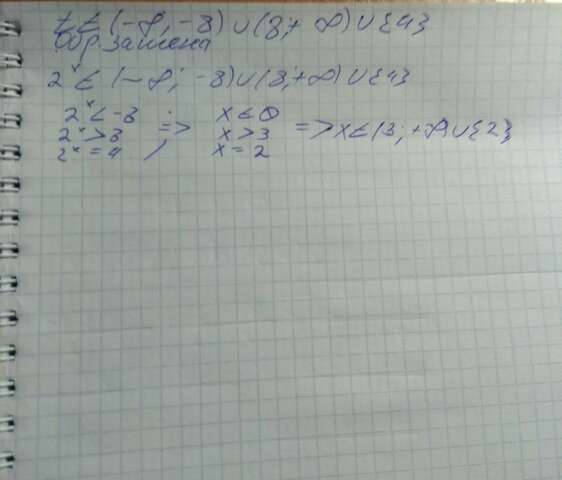 t ∈ (-∞; -8) ∪ (8; +∞) ∪ {4}
Обр. замена
2ˣ ∈ (-∞; -8) ∪ (8; +∞) ∪ {4}
2ˣ < -8 ; x ∈ Ø
2ˣ > 8 => x > 3 => x ∈ (3; +∞) ∪ {2}
2ˣ = 4 , x = 2